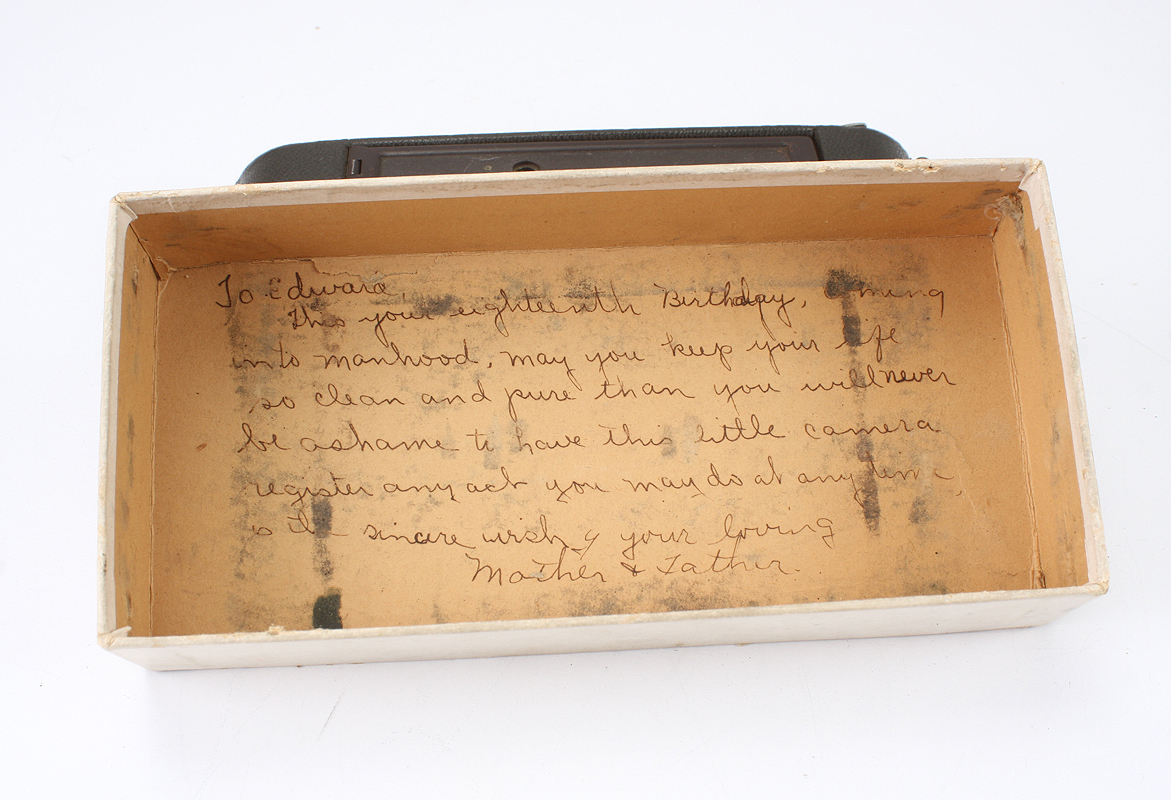 To Edward,
This your eighteenth Birthday, coming
into manhood, may you keep your life
so clean and pure than you will never
be ashame to have this little camera
register any act you may do at any time,
is the sincere wish of your loving
Mother & Father.